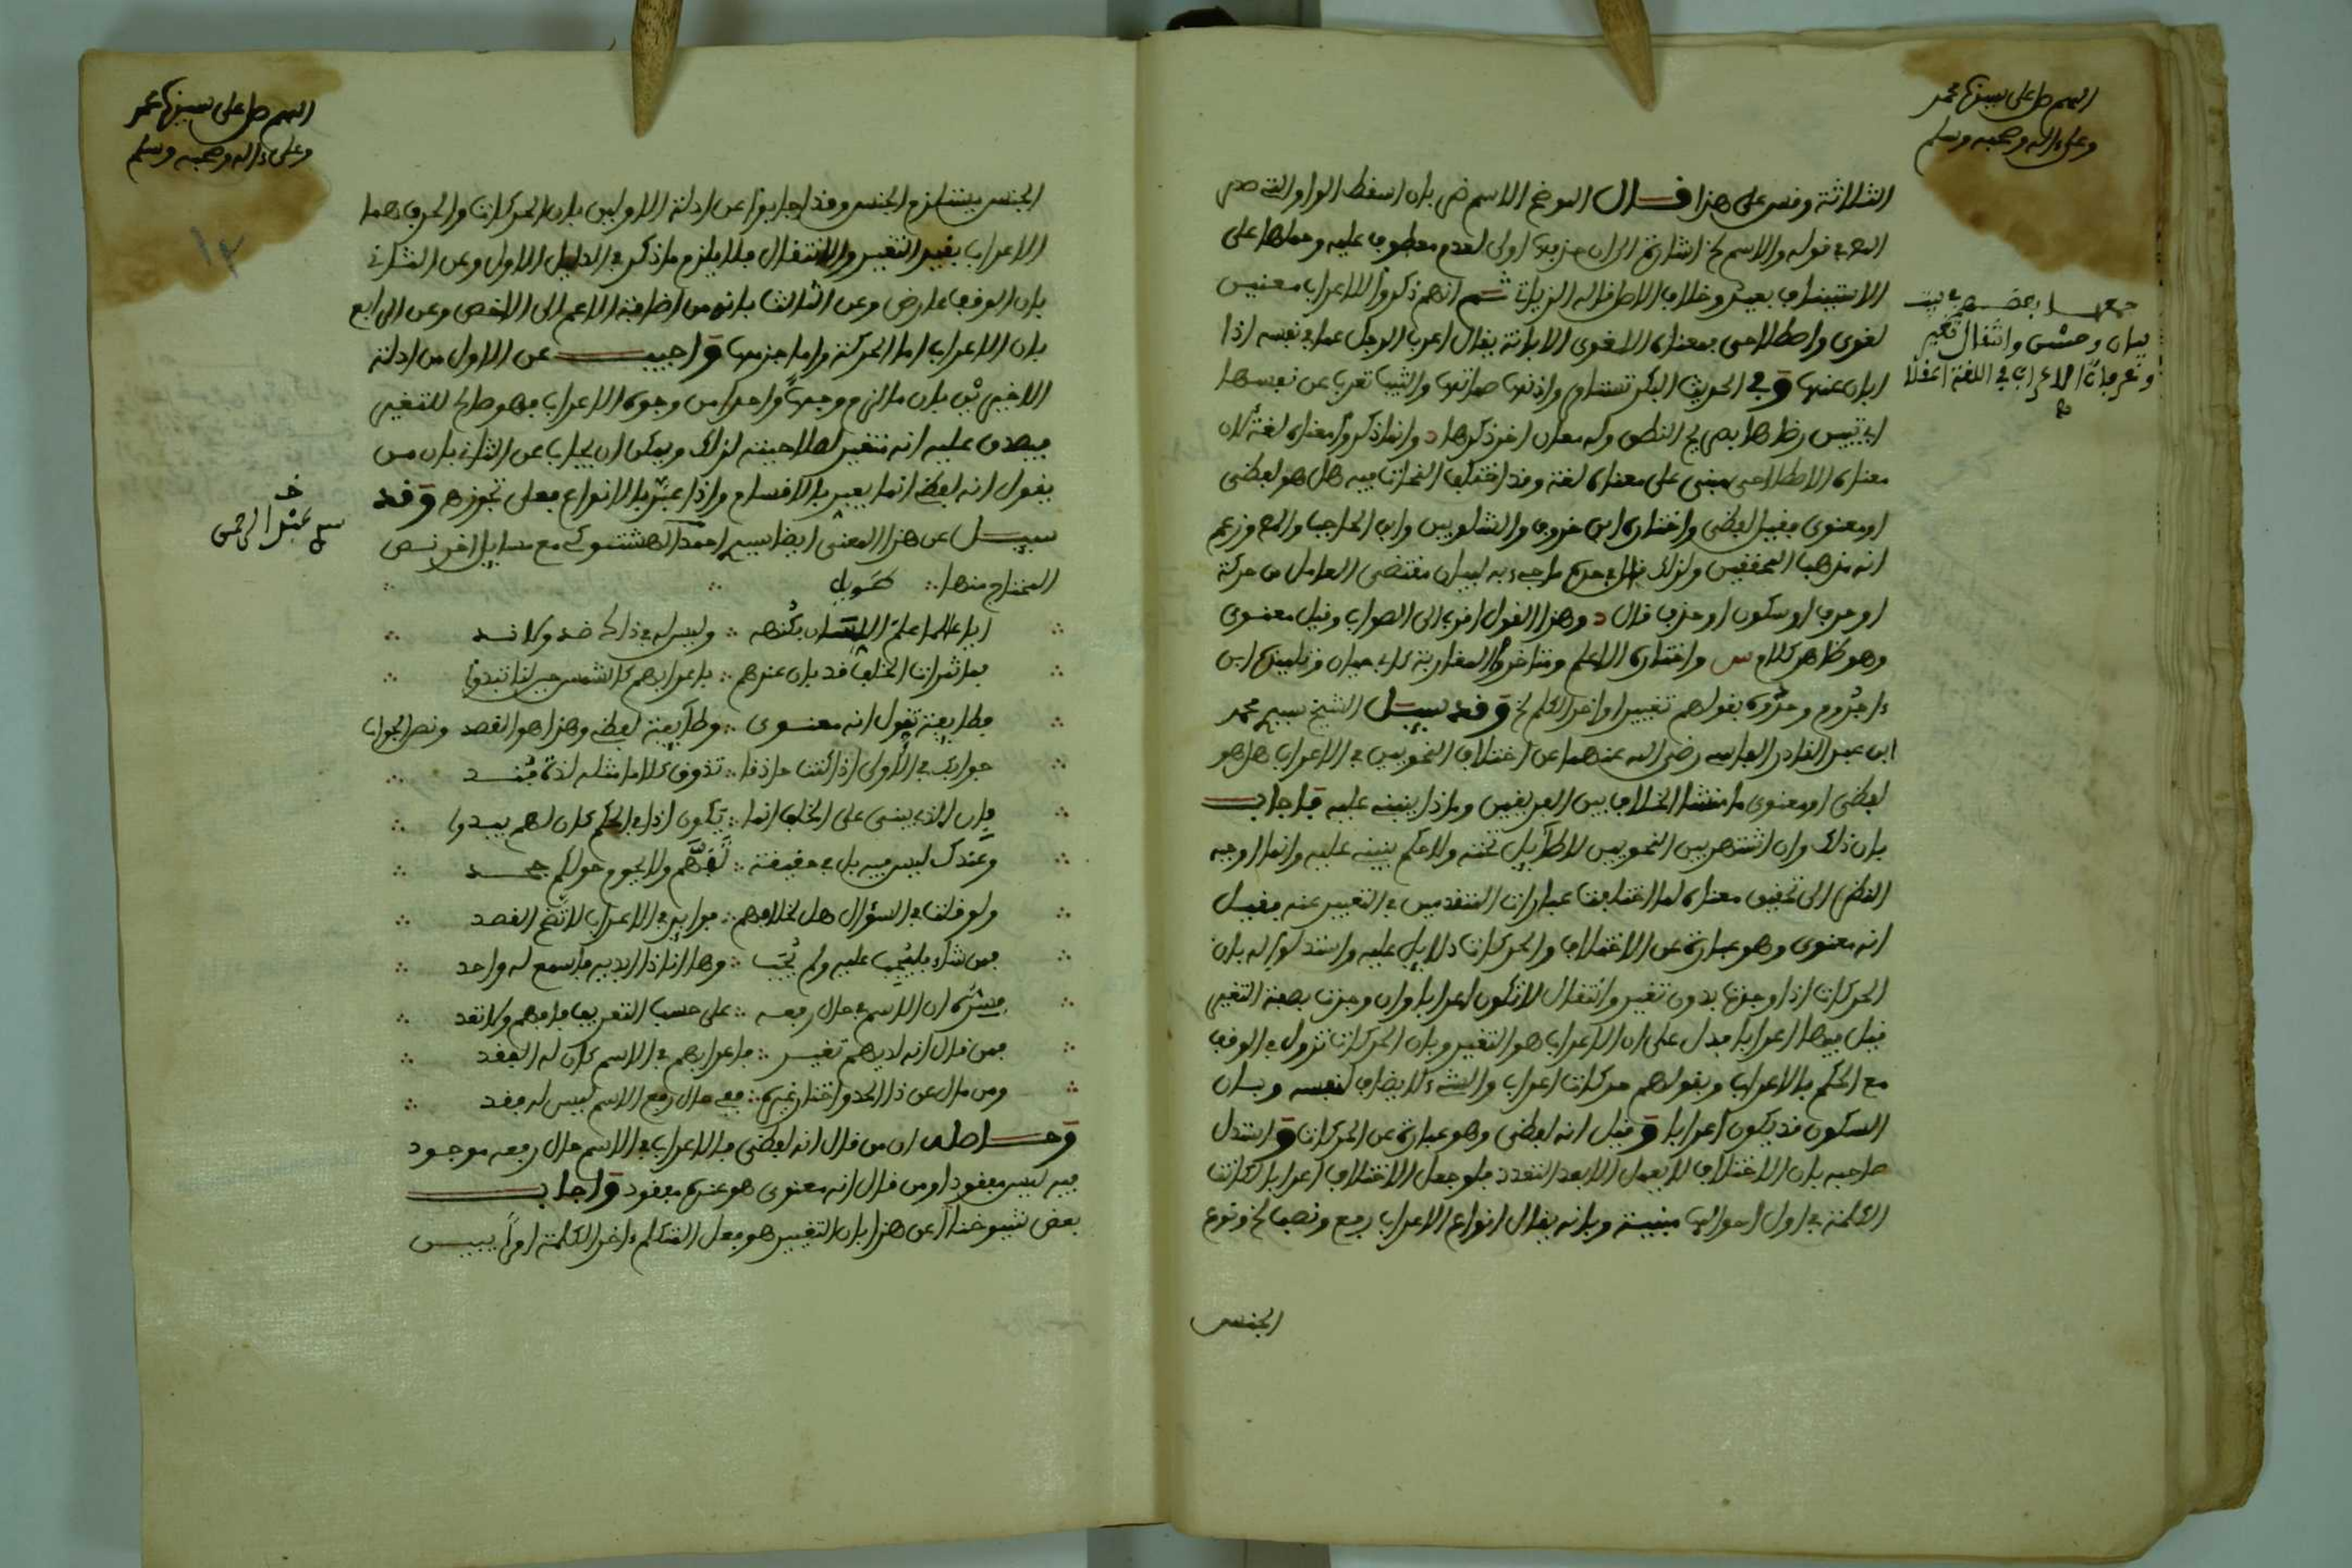 اللهم صل على سيدنا محمد
وعلى ءاله وصحبه وسلم
الثلاثة وقس على هذا قال الموضح الاسم ض بان اسقط الواو
في قوله والاسم لخ اشارة الى ان حذفها اولى لعدم معطوف عليه وحملها على
الاستيناف بعيد وخلاف الاصل ثم انهم ذكروا للاعراب معنيين
لغوى واصطلاحى فمعناه اللغوى الابانة يقال اعرب الرجل عما في نفسه اذا
ابان عنها وفي الحديث البكر تستاذن واذنها صماتها والثيب تعرب عن نفسها
اي تبين رضاها بصريح النطق وله معان اخر ذكرها وانما ذكروا معناه لغة لان
معناه الاصطلاحى مبنى على معناه لغة وقد اختلف النحاة فيه هل هو لفظى
او معنوى فقيل لفظى واختاره ابن خروف والشلوبين وابن الحاجب وزعم
انه مذهب المحققين ولذلك قال في حده ما جىء به لبيان مقتضى العامل من حركة
او حرف او سكون او حذف قال وهذا القول اقرب الى الصواب وقيل معنوى
وهو ظاهر كلام س واختاره الاعلم ومتاخروا المغاربة كابي حيان وتلميذه ابن
ءاجروم وحدوه بقولهم تغيير اواخر الكلم لخ وقد سيل الشيخ سيدي محمد
ابن عبد القادر الفاسي رضي الله عنهما عن اختلاف النحويين في الاعراب هل هو
لفظى او معنوى ما منشا الخلاف بين الفريقين وماذا ينبنى عليه فاجاب
بان ذلك وان اشتهر بين النحويين لا طايل تحته ولا حكم ينبنى عليه وانما اوجبه
النظر الى تحقيق معناه لما اختلفت عبارات المتقدمين في التعبير عنه فقيل
انه معنوى وهو عبارة عن الاختلاف والحركات دلايل عليه واستدلوا له بان
الحركات اذا وجدت بدون تغير وانتقال لا تكون اعرابا وان وجدت بصفة التغير
قيل فيها اعرابا فدل على ان الاعراب هو التغير وبان الحركات تزول في الوقف
مع الحكم بالاعراب وبقولهم حركات اعراب والشيء لا يضاف لنفسه وبان
السكون قد يكون اعرابا وقيل انه لفظى وهو عبارة عن الحركات واستدل
صاحبه بان الاختلاف لا يعقل الا بعد التعدد فلو جعل الاختلاف اعرابا لكانت
الكلمة في اول احوالها مبنية وبانه يقال انواع الاعراب رفع ونصب لخ ونوع
الجنس
جمعها بعضهم في بيت
بيان وحسن وانتقال تغير
وعرفان الاعراب في اللغة اعقلا
اللهم صل على سيدنا محمد
وعلى ءاله وصحبه وسلم
الجنس يستلزم الجنس وقد اجابوا عن ادلة الاولين بان الحركات والحرف هما
الاعراب بقيد التغير والانتقال فلا يلزم ما ذكر في الدليل الاول وعن الثاني
بان الوقف عارض وعن الثالث بانه من اضافة الاعم الى الاخص وعن الرابع
بان الاعراب اما الحركة واما حذفها واجيب عن الاول من ادلة
الاخيرين بان ما لزم وجها واحدا من وجوه الاعراب فهو صالح للتغير
فيصدق عليه انه متغير لصلاحيته لذلك ويمكن ان يجاب عن الثاني بان من
يقول انه لفظى انما يعبر بالاقسام واذا عبر بالانواع فعلى تجوزه وقد
سيل عن هذا المعنى ايضا سيدي احمد الهشتوكي مع مسايل اخر نص
المحتاج منها طويل
ايا عالما علم اللسان بكنهه وليس له في ذاك ضد ولا ند
فما ثمرات الخلف قد بان عندهم باعرابهم كالشمس حين لنا تبدوا
فطايفة تقول انه معنوى وطايفة لفظى وهذا هو القصد ونص الجواب
جوابك في الاولى اذا كنت حاذقا تذوق كلاما مثله لذة
فان الذى يبنى على الخلف انما تكون اذا في الحكم كان لهم يبدوا
وعندك ليس فيه بل في حقيقة ولا يحوم حولكم جحد
ولو قلت في السؤال هل لخلافهم فوايد في الاعراب لاتضح القصد
فمن شاء فليجب عليه ولم يجب وها انا ذا اريد فاسمع له واحد
على حسب التعريف فافهم ولا تعد
فمن قال انه لديهم تغير فاعرابهم في الاسم كان له الفقد
ومن مال عن ذا الحد واختار غيره ففي حال رفع الاسم ليس له فقد
وحاصله ان من قال انه لفظى فالاعراب في الاسم حال رفعه موجود
فيه ليس مفقودا ومن قال انه معنوى هو عنده مفقود واجاب
بعض شيوخنا عن هذا بان التغيير هو فعل المتكلم ءاخر الكلمة اولا
سيدي عبد الرحمن